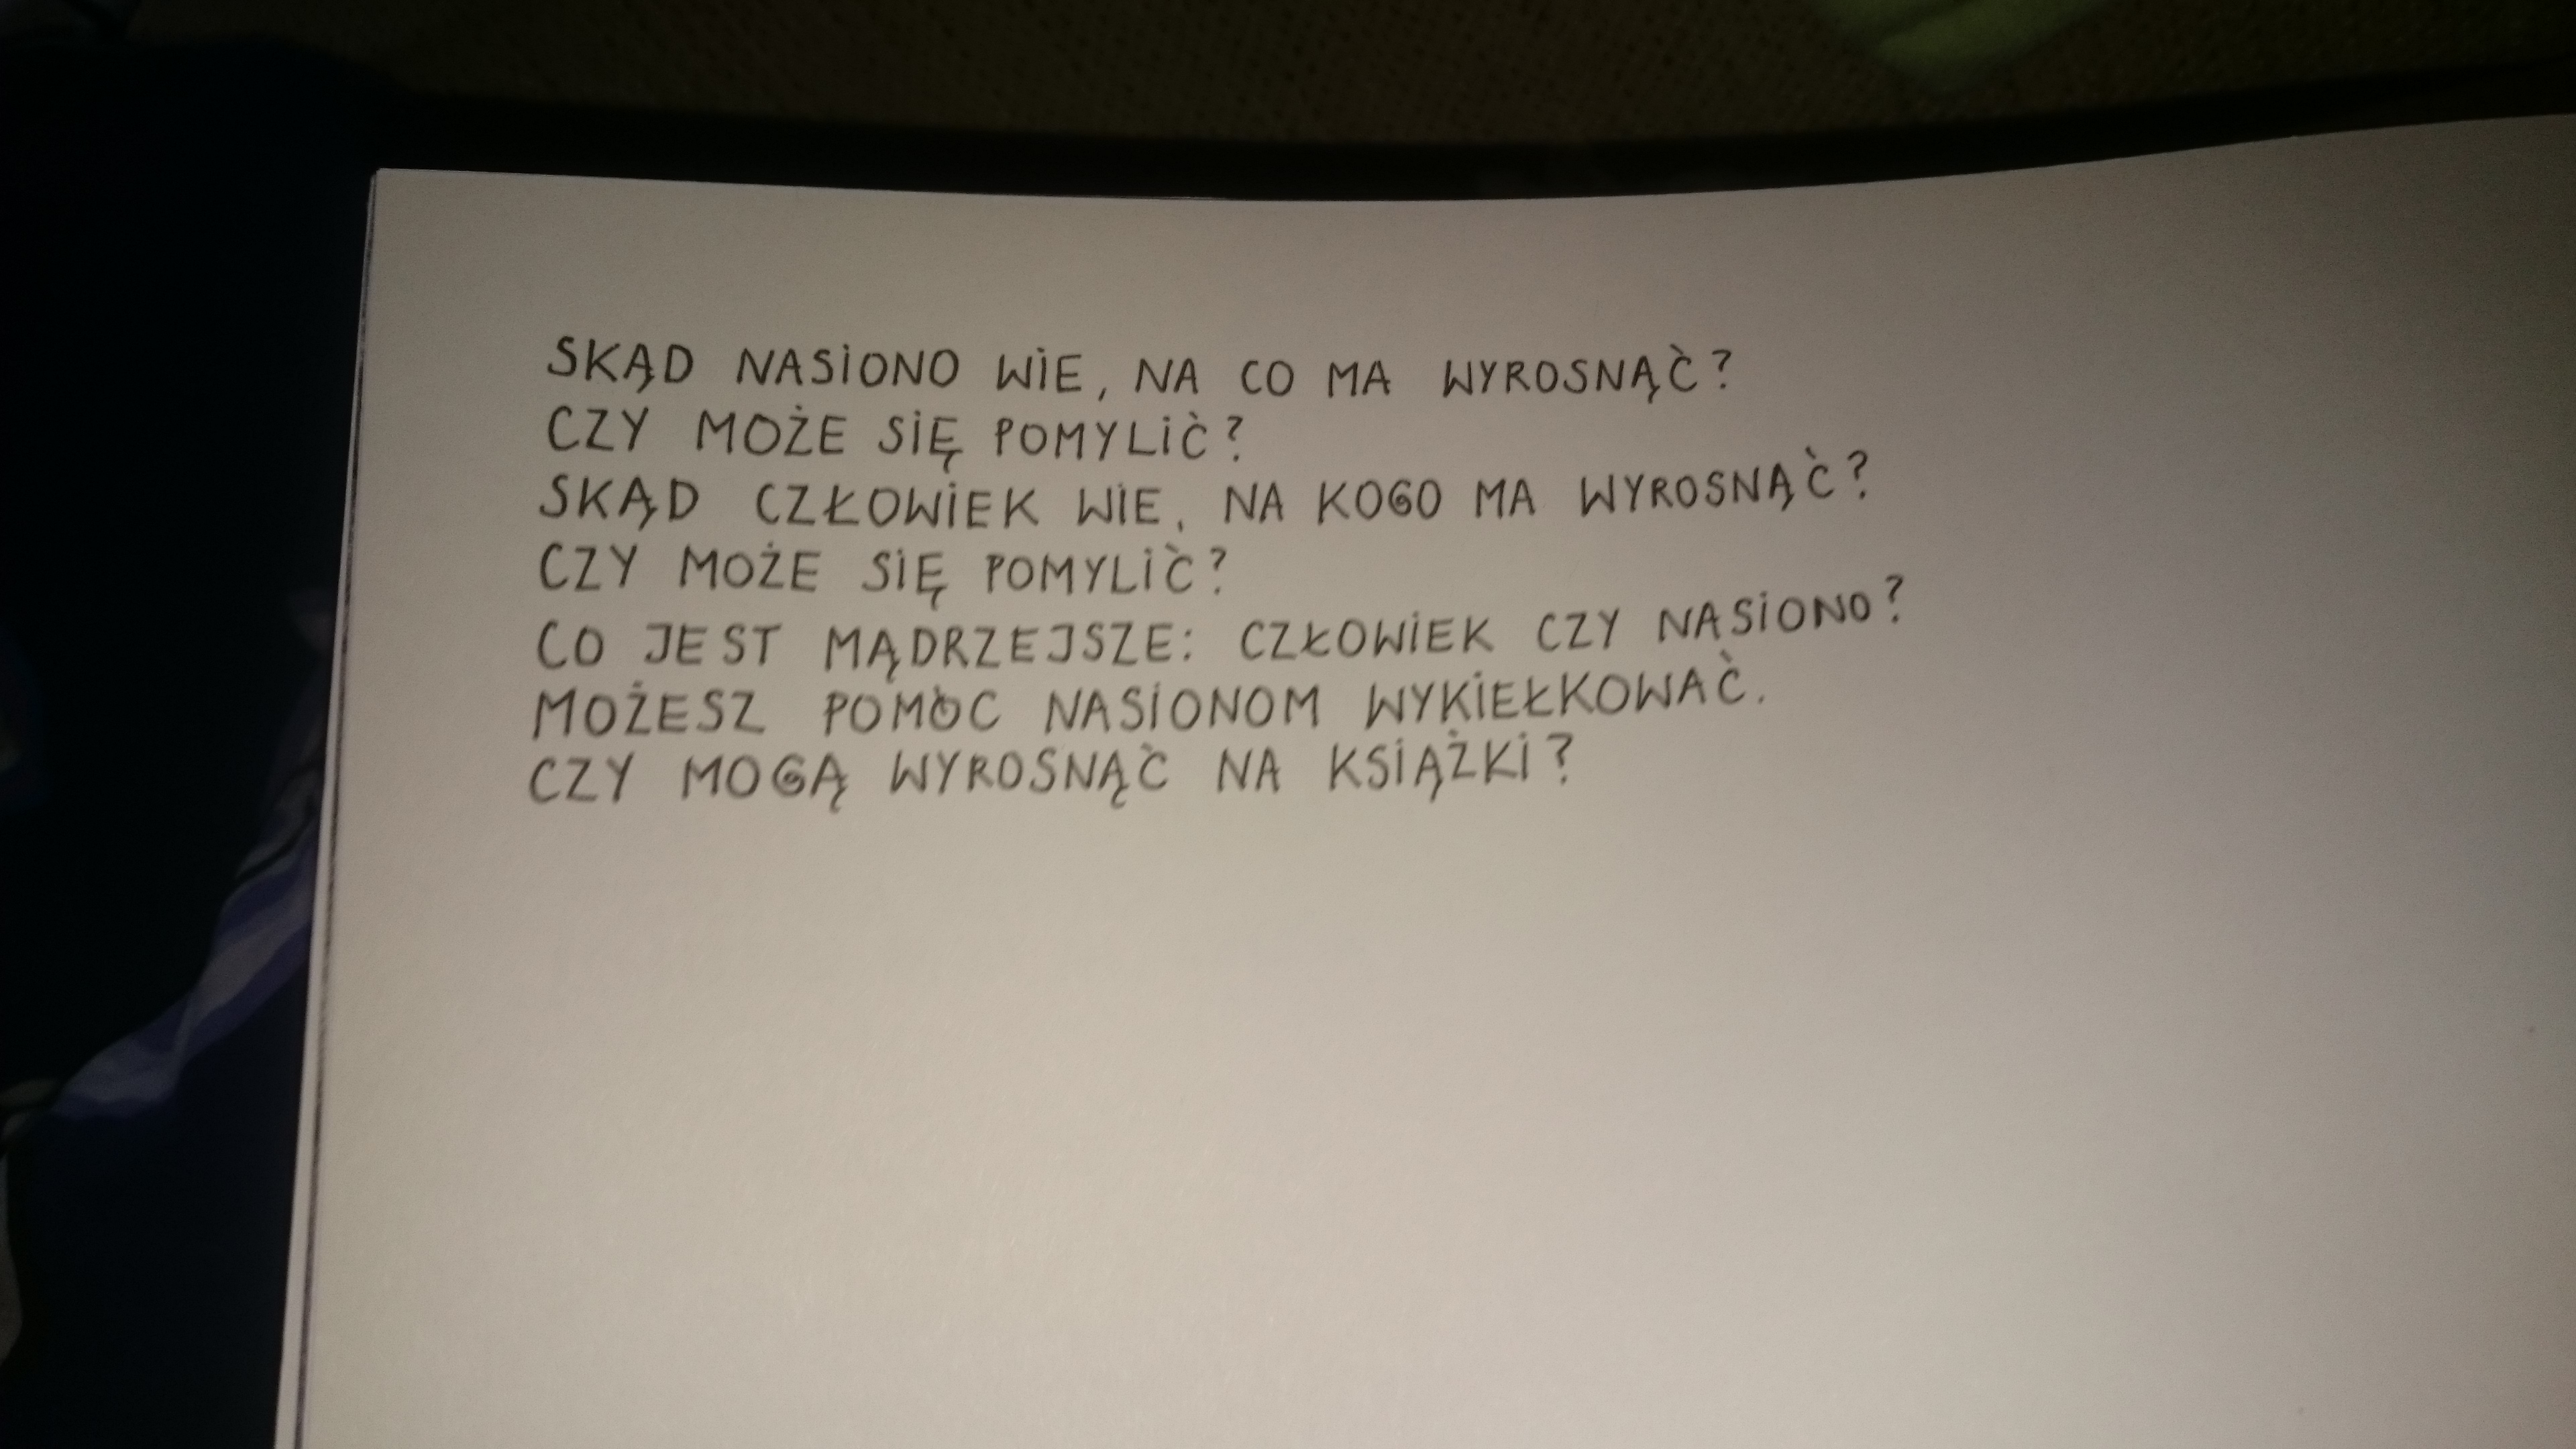 SKĄD NASIONO WIE, NA CO MA WYROSNĄĆ?
CZY MOŻE SIĘ POMYLIĆ?
SKĄD CZŁOWIEK WIE, NA KOGO MA WYROSNĄĆ?
CZY MOŻE SIĘ POMYLIĆ?
CO JEST MĄDRZEJSZE: CZŁOWIEK CZY NASIONO?
MOŻESZ POMÓC NASIONOM WYKIEŁKOWAĆ.
CZY MOGĄ WYROSNĄĆ NA KSIĄŻKI?